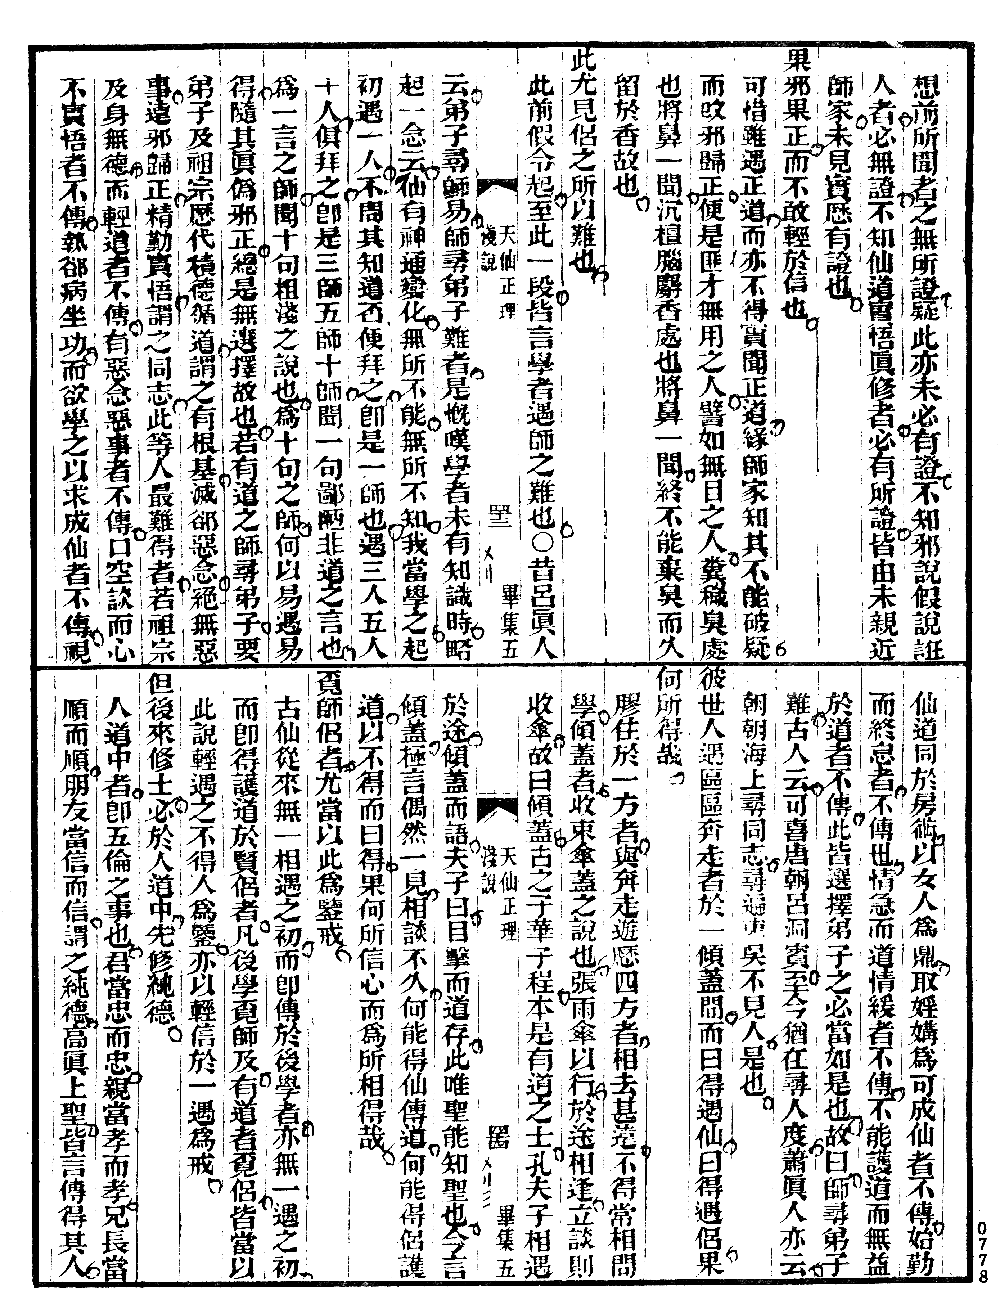 想前所聞者之無所證疑此亦未必有證不知邪說假說誑
人者必無證不知仙道實悟眞修者必有所證皆由未親近
師家未見實應有證也
果邪果正而不敢輕於信也
可惜雖遇正道而亦不得實聞正道緣師家知其不能破疑
而改邪歸正便是匪才無用之人譬如無目之人糞穢臭處
也將鼻一聞沉檀腦麝香處也將鼻一聞終不能棄臭而久
留於香故也
此尤見侶之所以難也
此前假令起至此一段皆言學者遇師之難也〇昔呂眞人
天仙正理
淺說
畢集五
云弟子尋師易師尋弟子難者是慨嘆學者未有知識時略
起一念云仙有神通變化無所不能無所不知我當學之起
初遇一人不問其知道否便拜之卽是一師也遇三人五人
十人俱拜之卽是三師五師十師聞一句鄙陋非道之言也
爲一言之師聞十句粗淺之說也爲十句之師何以易遇易
得隨其眞偽邪正總是無選擇故也若有道之師尋弟子要
弟子及祖宗歷代積德循道謂之有根基滅邪惡念絕無惡
事遠邪歸正精勤實悟謂之同志此等人最難得者若祖宗
及身無德而輕道者不傳有惡念惡事者不傳口空談而心
不實悟者不傳執邪病坐功而欲學之以求成仙者不傳視
仙道同於房術以女人爲鼎取婬媾爲可成仙者不傳始勤
而終怠者不傳世情急而道情緩者不傳不能護道而無益
於道者不傳此皆選擇弟子之必當如是也故曰師尋弟子
難古人云可喜唐朝呂洞賓至今猶在尋人度蕭眞人亦云
朝朝海上尋同志尋遍 吳不見人是也
彼世人遇區區奔走者於一傾蓋間而曰得遇仙曰得遇侶果
何所得哉
膠住於一方者與奔走遊歷四方者相去甚遠不得常相問
學傾蓋者收束傘蓋之說也張雨傘以行於途相逢立談則
收傘故曰傾蓋古之子華子程本是有道之士孔夫子相遇
天仙正理
淺說
畢集五
於途傾蓋而語夫子曰目擊而道存此唯聖能知聖也今言
傾蓋極言偶然一見相談不久何能得仙傳道何能得侶護
道以不得而曰得果何所信心而爲所相得哉
覓師侶者尤當以此爲鑒戒
古仙從來無一相遇之初而卽傳於後學者亦無一遇之初
而卽得護道於賢侶者凡後學覓師及有道者覓侶皆當以
此說輕遇之不得人爲鑒亦以輕信於一遇爲戒
但後來修士必於人道中先修純德
人道中者卽五倫之事也君當忠而忠親當孝而孝兄長當
順而順朋友當信而信謂之純德高眞上聖皆言傳得其人
0778